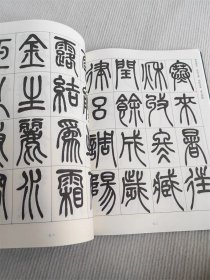 寒來暑往
秋收冬藏
閏餘成歲
律呂調陽
露結爲霜
金生麗水